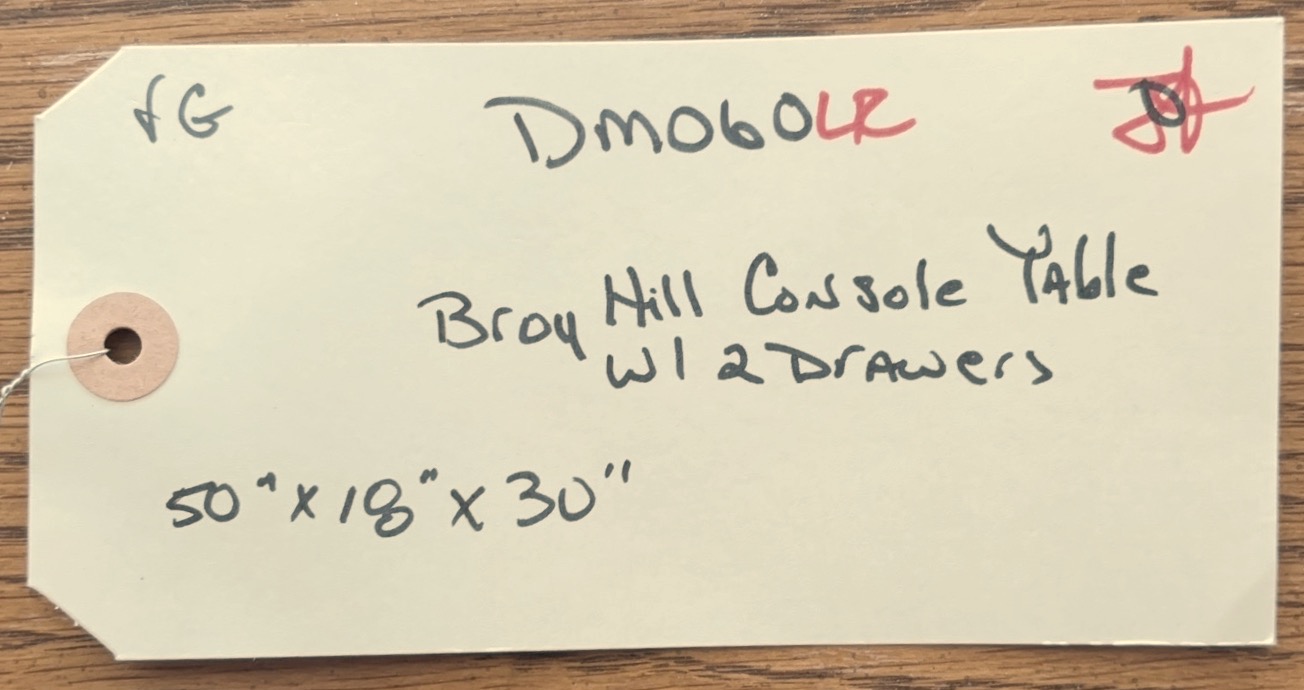 VG DM060LR
Broy Hill Console Table
W/ 2 Drawers
50" x 18" x 30"